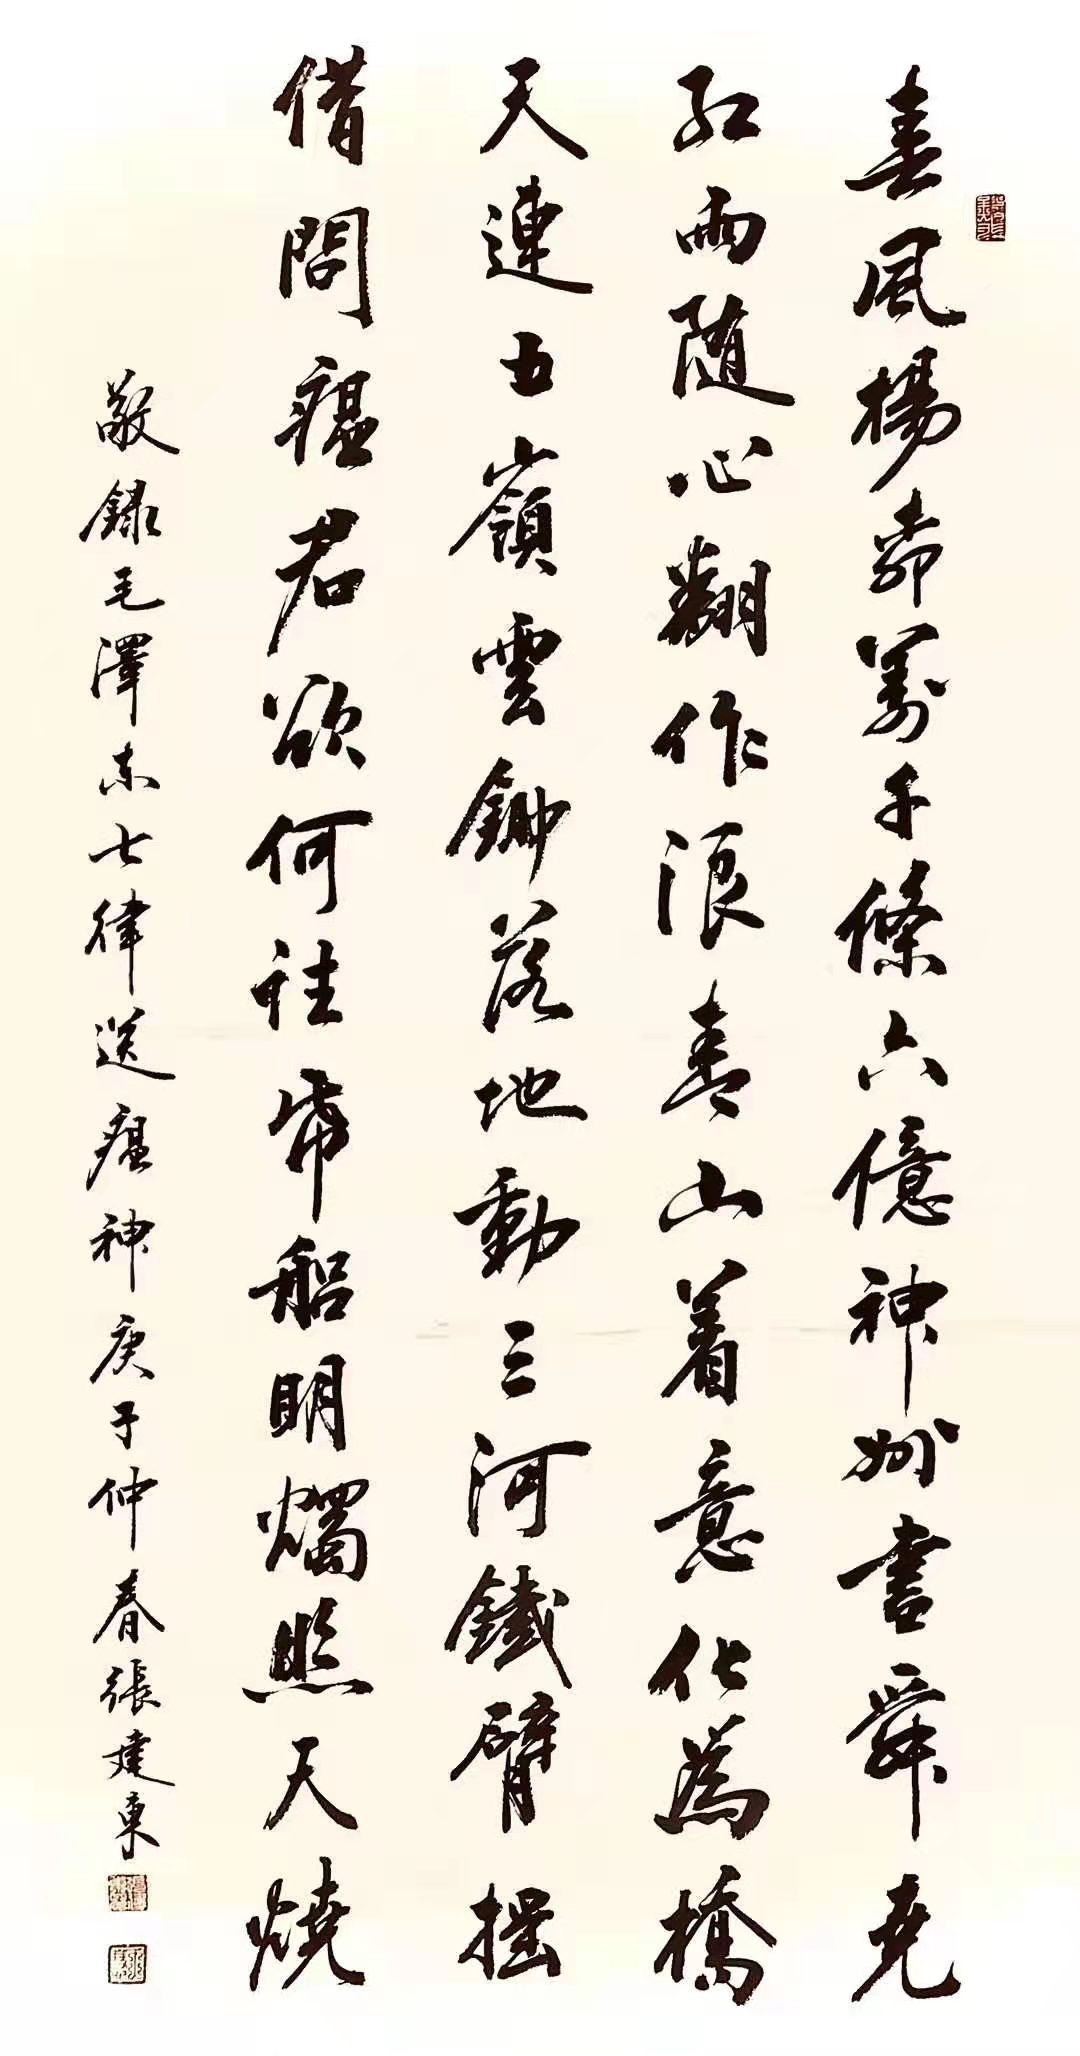 春風楊柳萬千條六億神州盡舜堯
紅雨随心翻作浪青山着意化為橋
天連五嶺雲鋤落地動三河鐵臂搖
借問瘟君欲何往帋船明燭照天燒
敬錄毛澤东七律送瘟神庚子仲春張建東